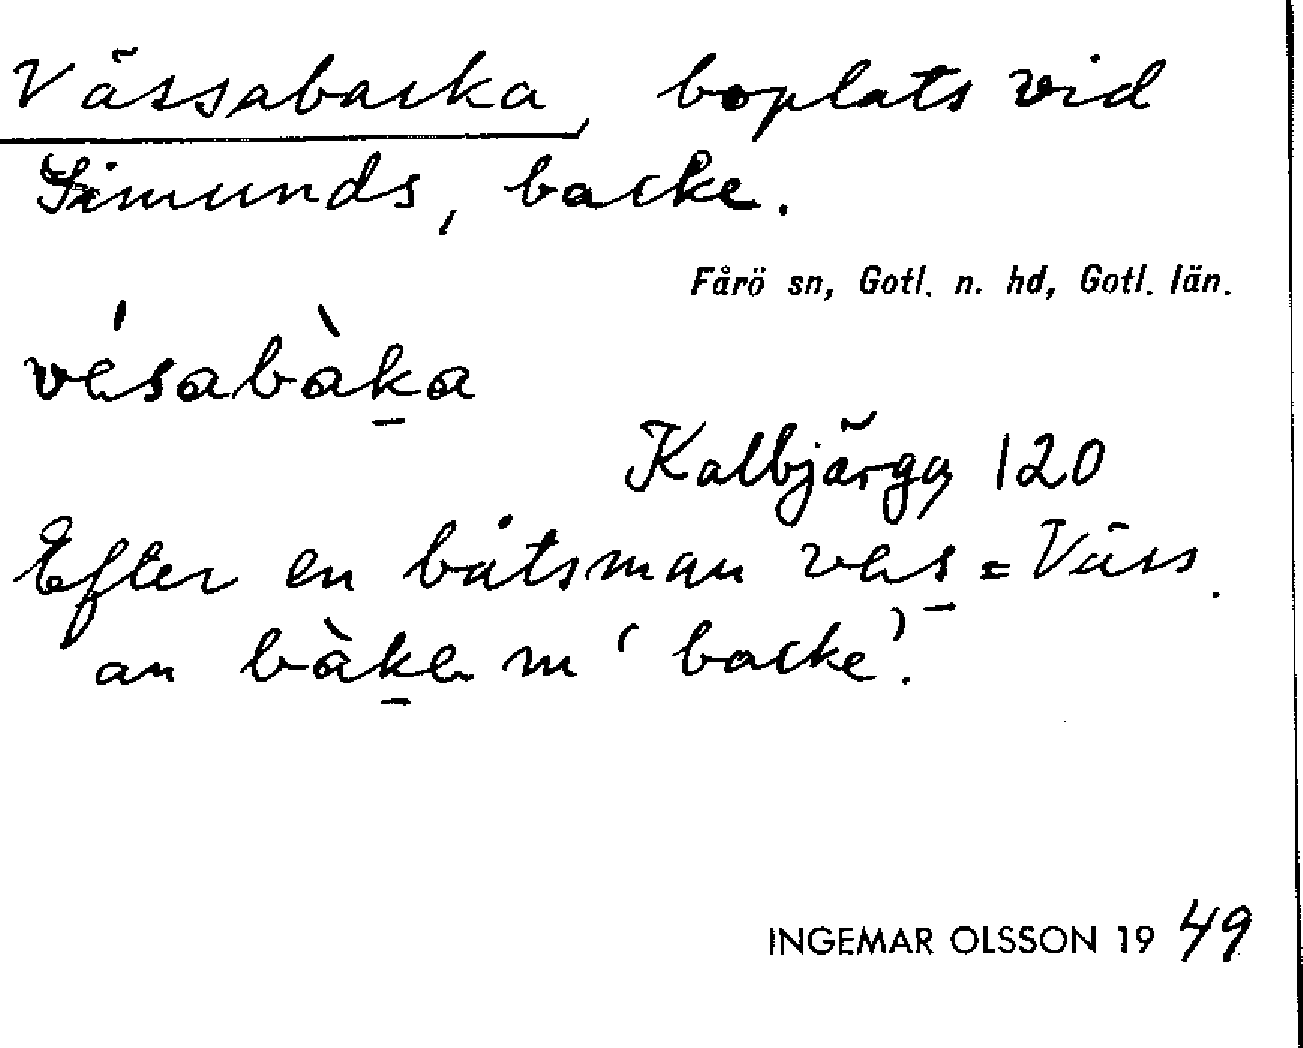 Vässabacka, boplats vid
Simunds, backe.
Fårö sn, Gotl. n. hd, Gotl. län.
vésabàka
Kalbjärga 120
Efter en båtsman ves = Väss.
an bàka m 'backe'.
INGEMAR OLSSON 1949